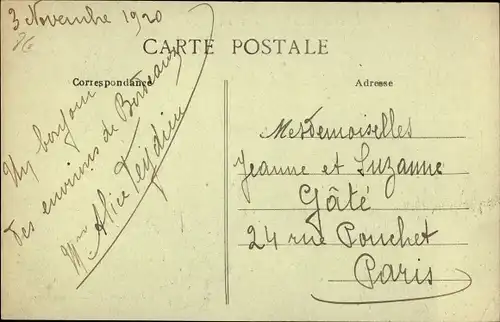 3 Novembre 1920
CARTE POSTALE
Correspondance
Adresse
Un bonjour
des environs de Bordeaux
Mme Alice
Mesdemoiselles
Jeanne et Suzanne
Gâté
24 rue Pouchet
Paris